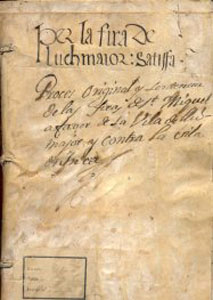 per la fira de
lluchmaior: satisfa.
Proces original y sentencia
de las firas de St. Miquel
a favor de La Vila de lluch
major y contra la vila
de Inca